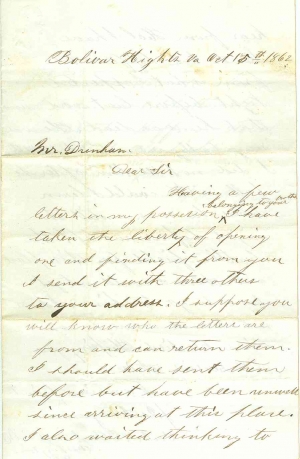 Bolivar Hights Va Oct 15th 1862
Mr. Drenham.
Dear Sir
Having a few
belonging to your
letters in my possession, I have
taken the liberty of opening
one and finding it from you
I send it with three others
to your address. I suppose you
will know who the letters are
from and can return them.
I should have sent them
before but have been unwell
since arriving at this place.
I also waited thinking to